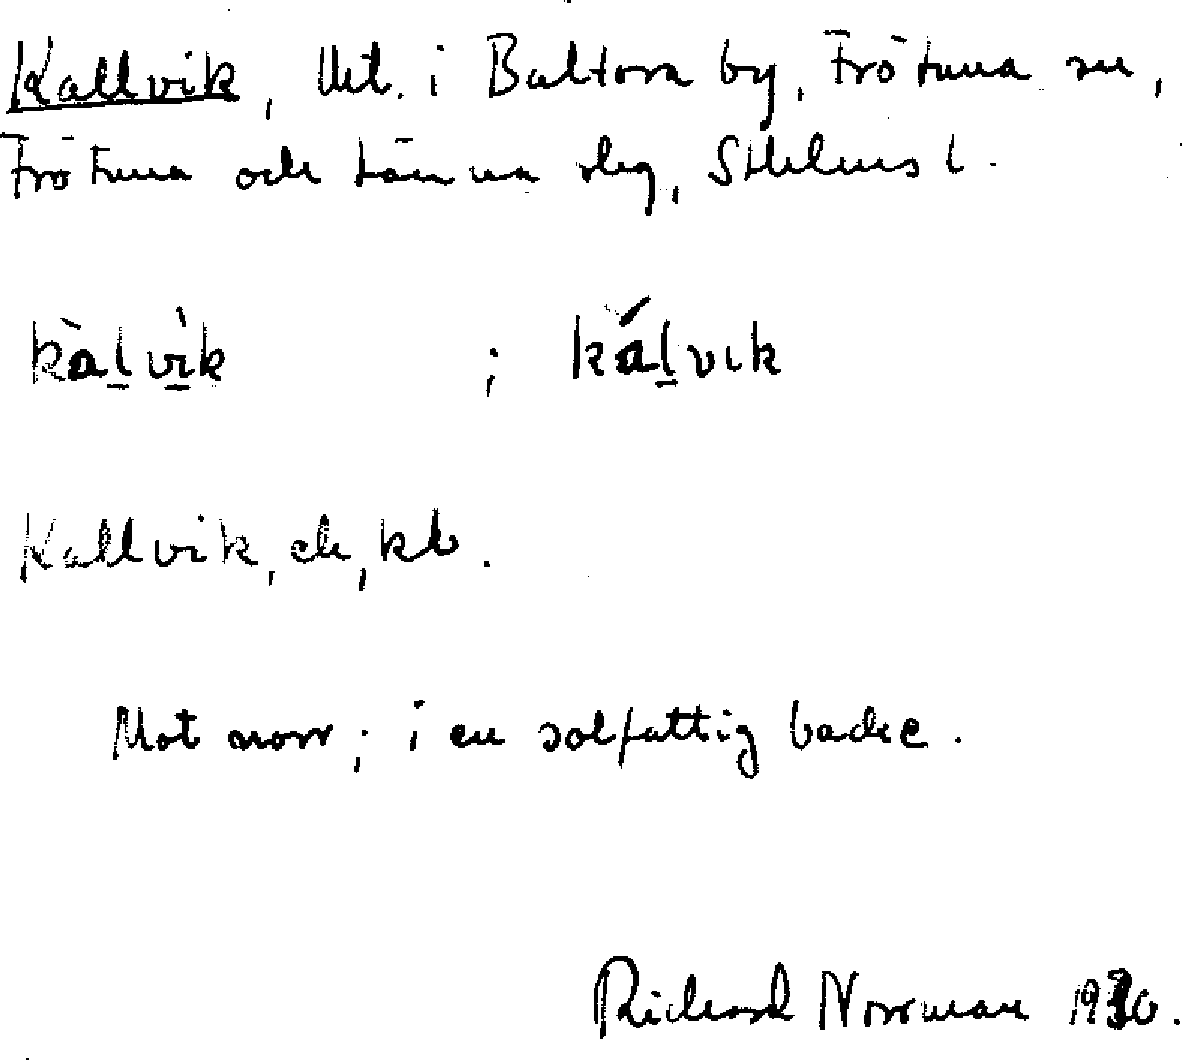 Kallvik, lht. i Baltora by, Frötuna sn,
Frötuna och Länna slg, Sthlms l.
kàl̠vì̠k ; kál̠vık
Kallvik, ek, kb.
Mot norr; i en solfattig backe.
Richard Norrman 1930.